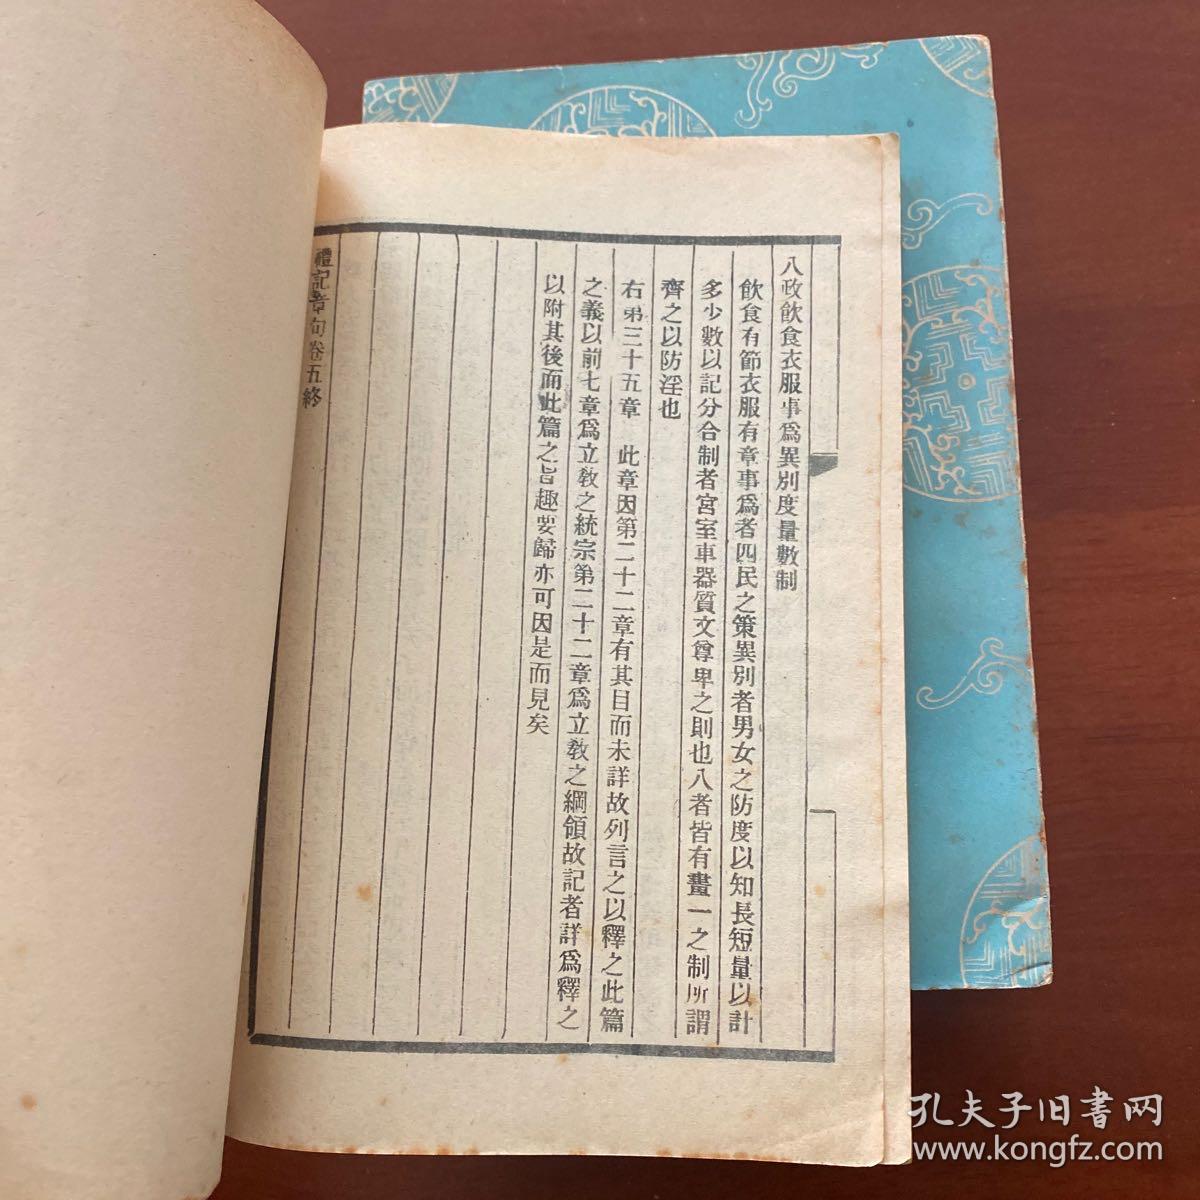 八政飲食衣服事爲異別度量數制
飲食有節衣服有章事爲者四民之策異別者男女之防度以知長短量以計
多少數以記分合制者宮室車器質文尊卑之則也八者皆有畫一之制所謂
齊之以防淫也
右第三十五章　此章因第二十二章有其目而未詳故列言之以釋之此篇
之義以前七章爲立敎之統宗第二十二章爲立敎之綱領故記者詳爲釋之
以附其後而此篇之旨趣要歸亦可因是而見矣
禮記章句卷五終
孔夫子旧书网
www.kongfz.com